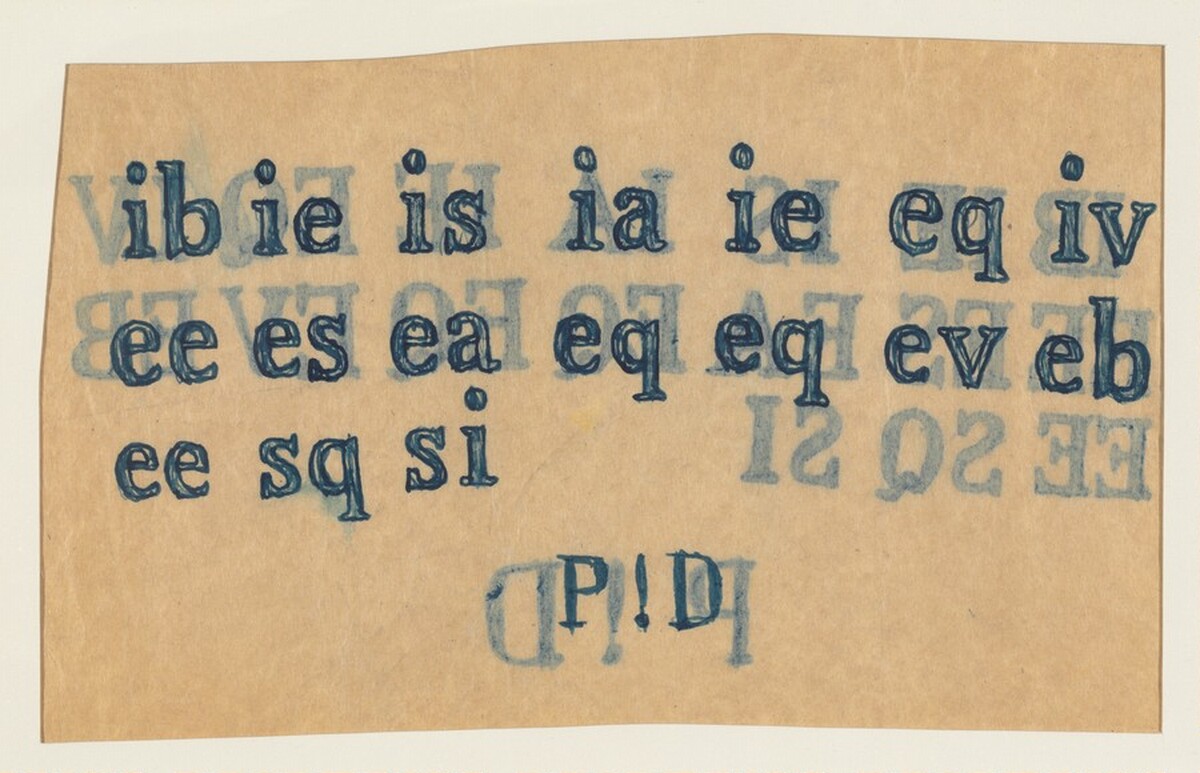 ib ie is ia ie eq iv
ee es ea eq eq ev eb
ee sq si
P!D